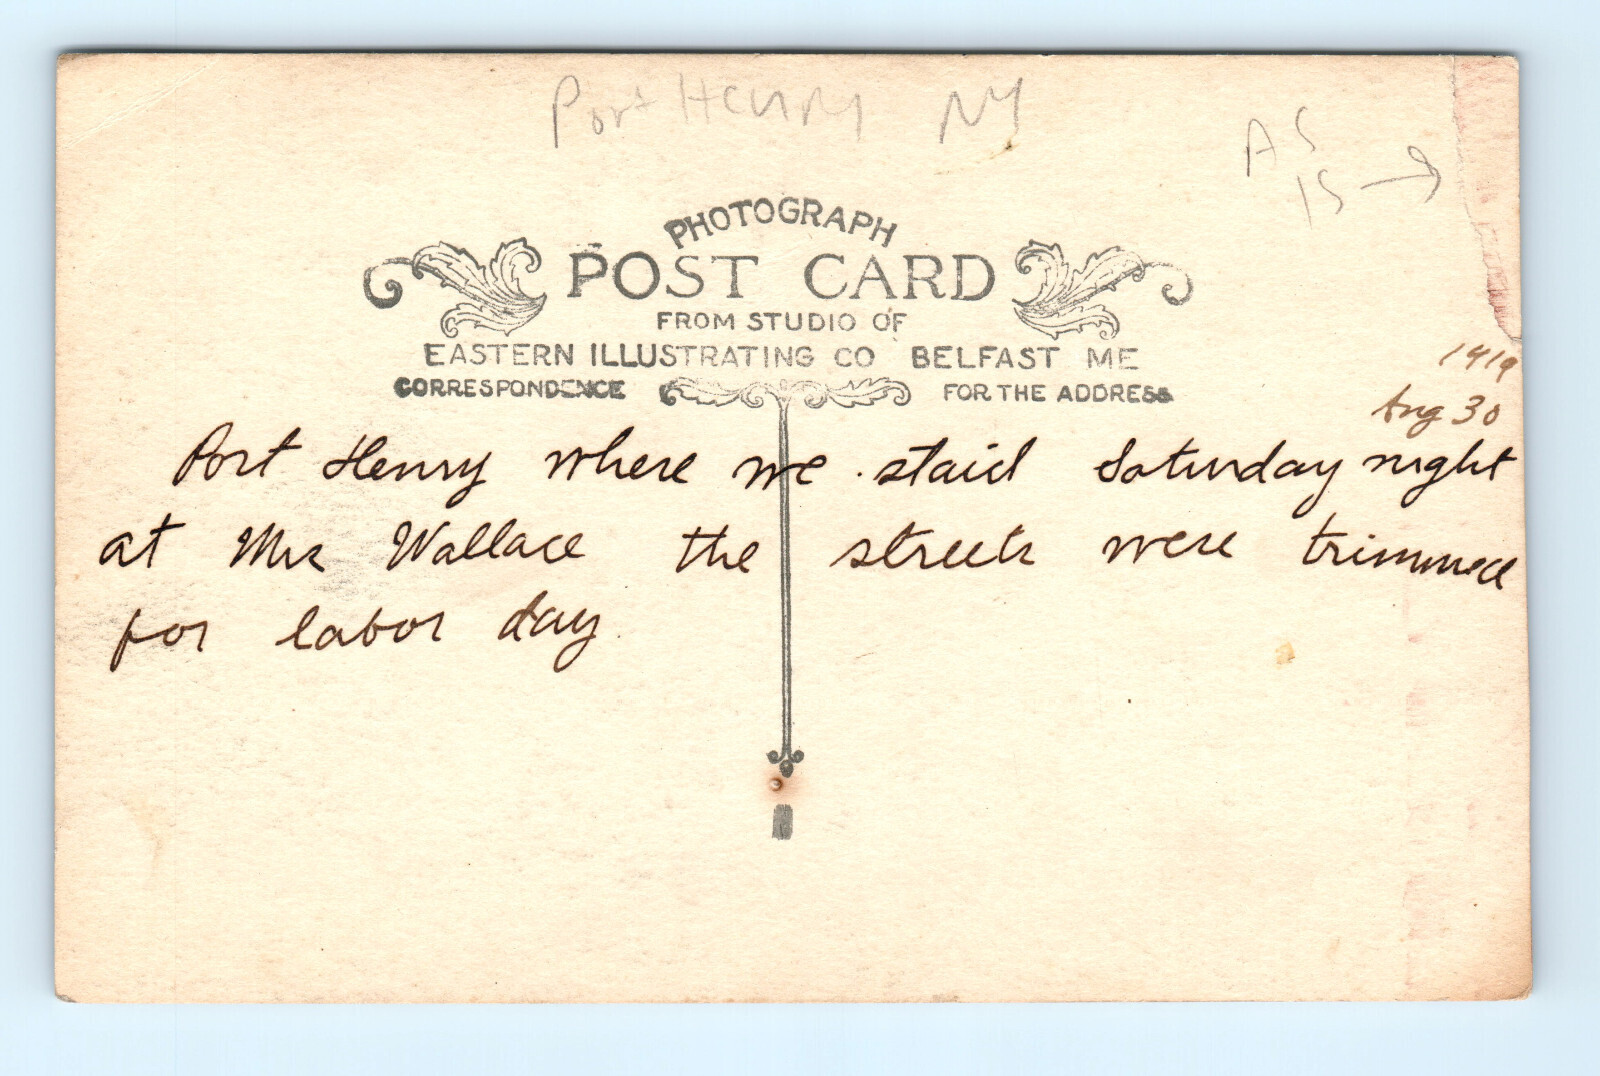 Port Henry NY
AS
15 →
PHOTOGRAPH
POST CARD
FROM STUDIO OF
EASTERN ILLUSTRATING CO BELFAST ME
CORRESPONDENCE FOR THE ADDRESS
1919
Aug 30
Port Henry where we staid Saturday night
at Mrs Wallace the streets were trimmed
for labor day.